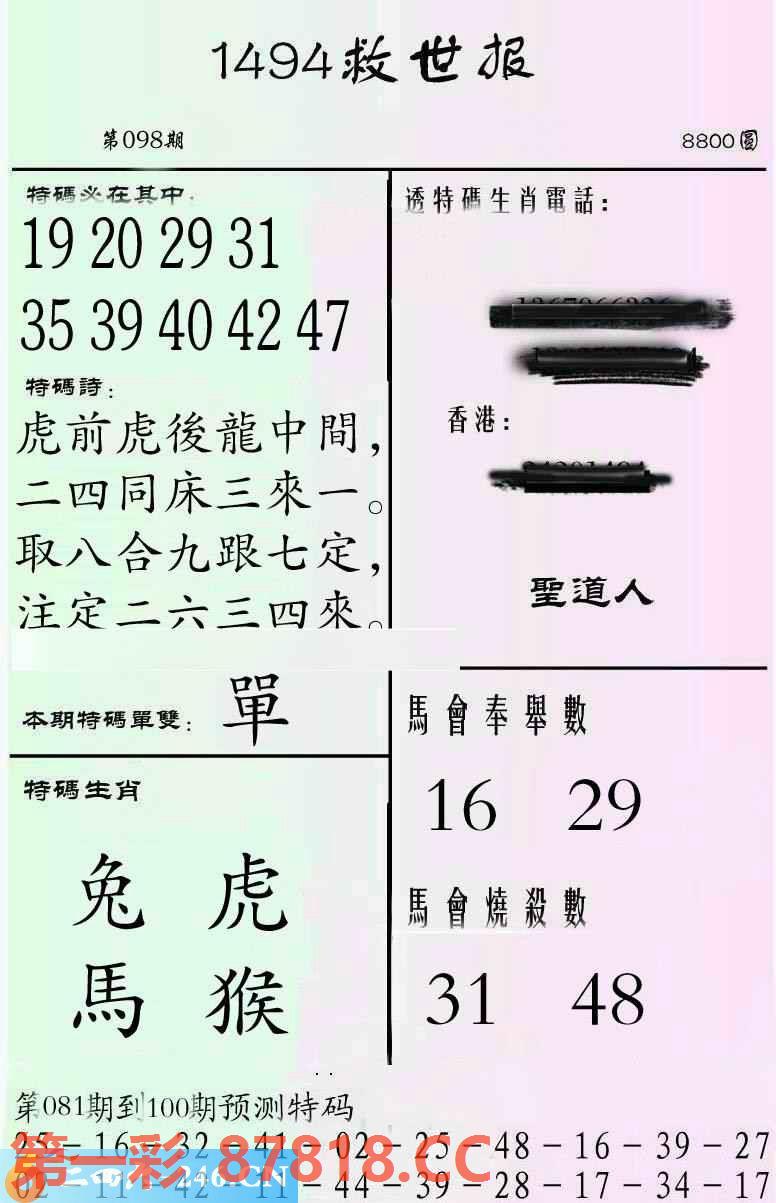 1494救世报
第098期
8800圓
特碼必在其中:
19 20 29 31
35 39 40 42 47
特碼詩:
虎前虎後龍中間，
二四同床三來一。
取八合九跟七定，
注定二六三四來。
本期特碼單雙: 單
特碼生肖
兔 虎
馬 猴
透特碼生肖電話:
香港:
聖道人
馬會奉舉數
16 29
馬會燒殺數
31 48
第081期到100期预测特码
25－16－32－41－02－25－48－16－39－27
第一彩 87818.CC
02－11－42－11－44－39－28－17－34－17
246.CN